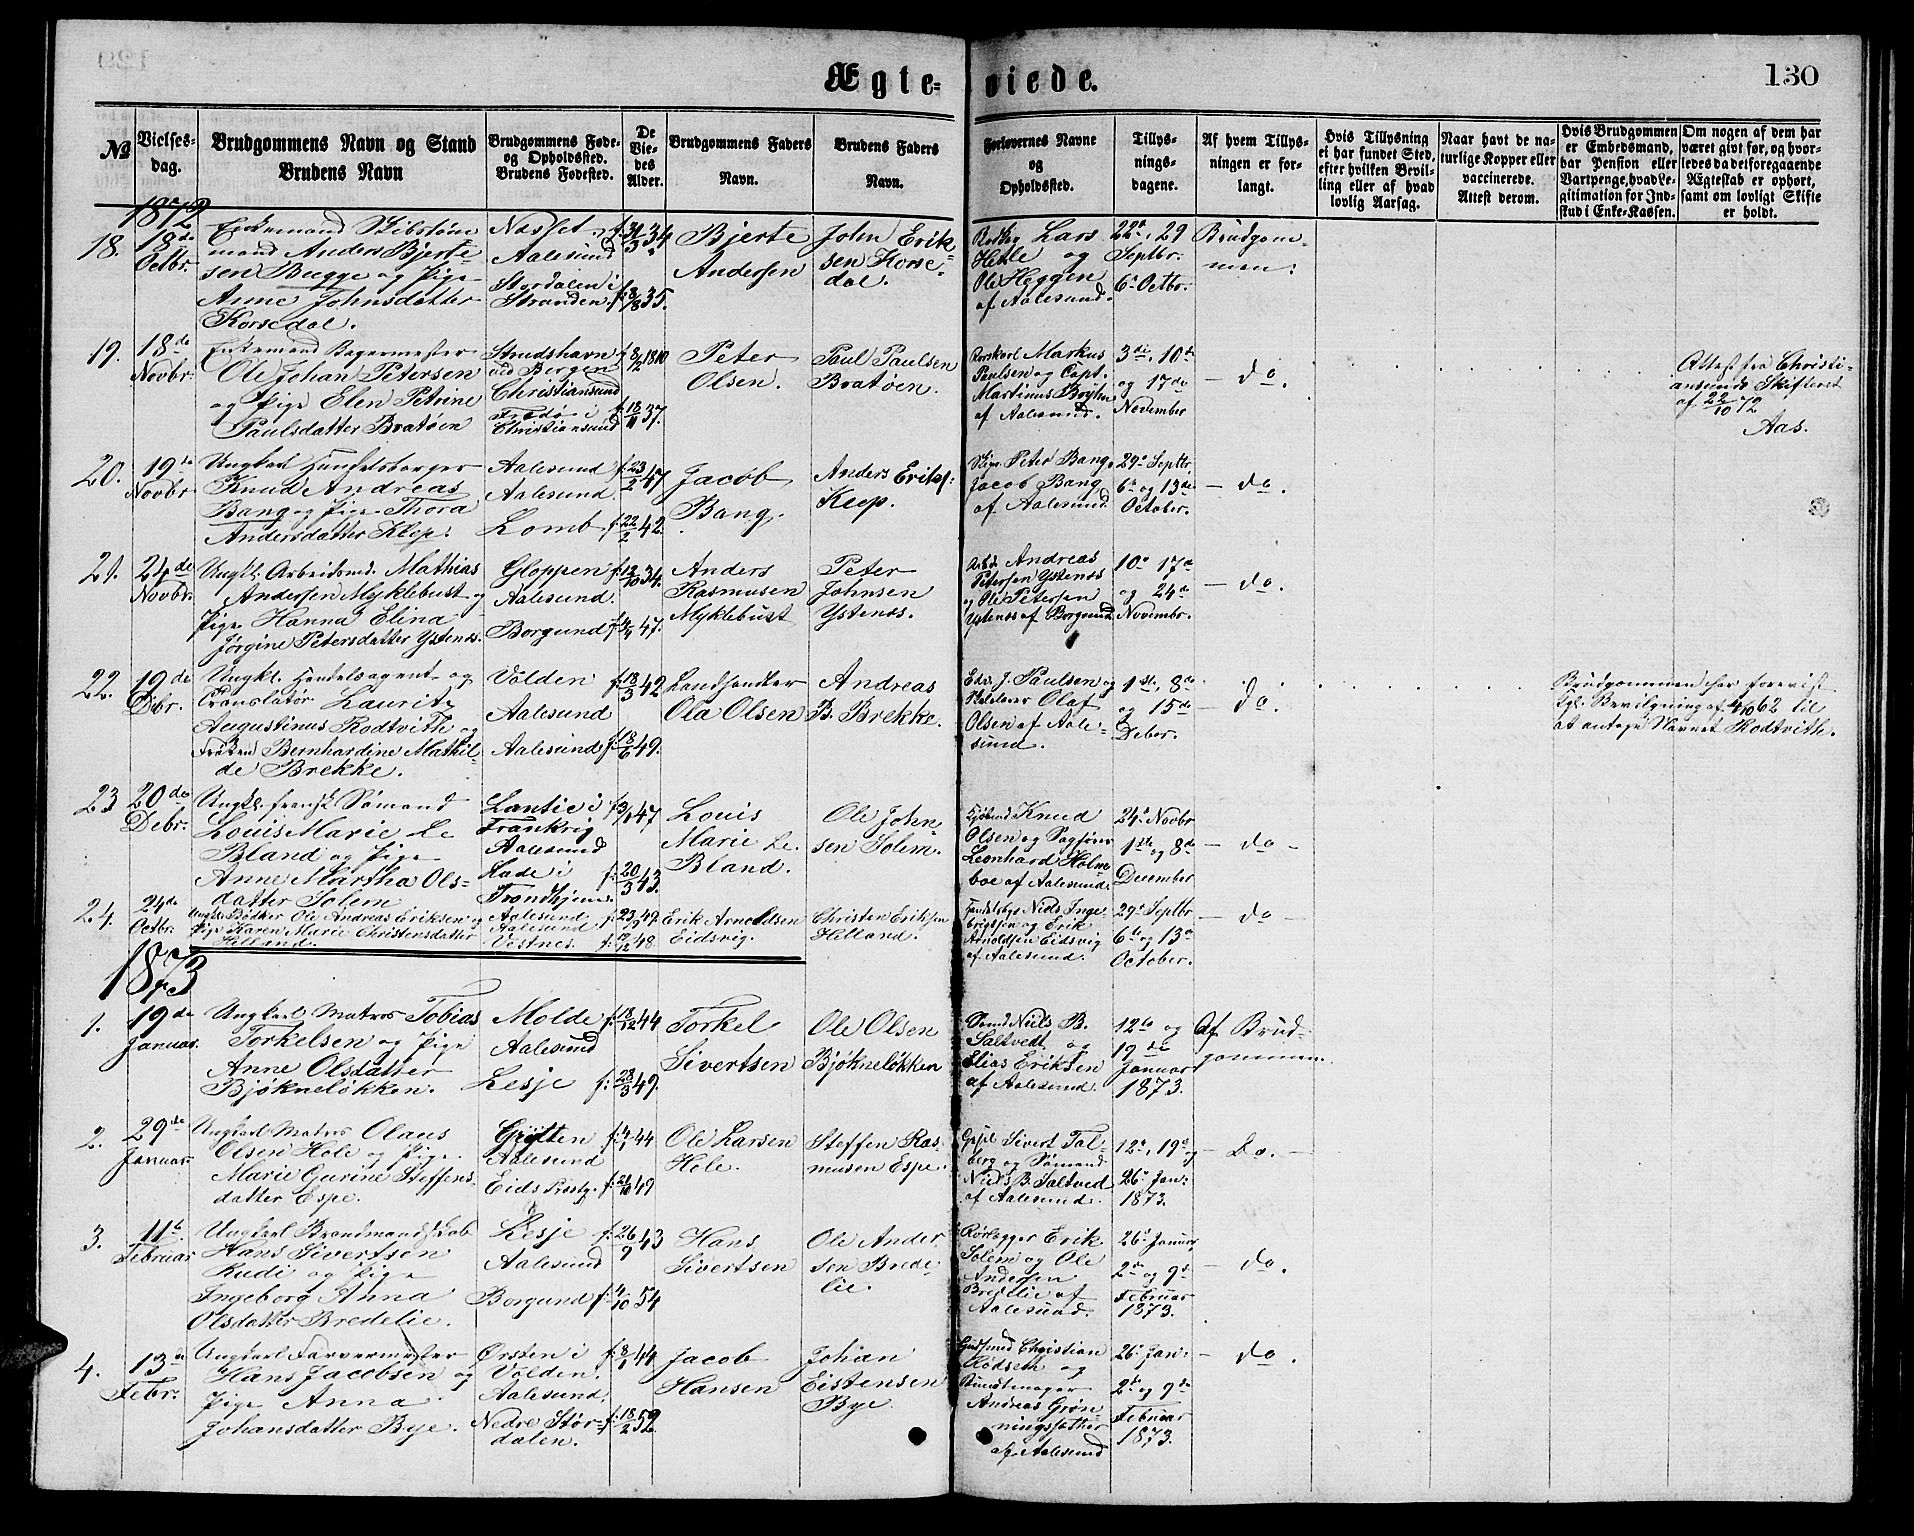 Ægte-viede.
130
No
Vielses-dag.
Brudgommens Navn og Stand
Brudens Navn
Brudgommens Føde- og Opholdssted.
Brudens Fødested.
De Viedes Alder.
Brudgommens Faders Navn.
Brudens Faders Navn.
Forlovernes Navne og Opholdssted.
Tillysningsdagene.
Af hvem Tillysningen er forlangt.
Hvis Tillysning ei har fundet Sted, efter hvilken Bevilling eller af hvad lovlig Aarsag.
Naar havt de naturlige Kopper eller vaccinerede. Attest derom.
Hvis Brudgommen er Embedsmand, har Pension eller Vartpenge, hvad Legitimation for Indskud i Enke-Kassen.
Om nogen af dem har været gift før, og hvorledes da det foregaaende Ægteskab er ophørt, samt om lovligt Skifte er holdt.
1872
18. 18de Octbr.
Enkemand Skibstømmermand Anders Bjertesen Bugge og Pige
Anne Johnsdatter Korsedal.
Nesset
Aalesund
Stordalen i Stranden.
34
f. 8/8 35.
Bjerte Andersen
John Eriksen Korsedal.
Lars Hetle og Ole Heggen af Aalesund.
22de, 29 Septbr. 6te Octbr.
Brudgommen.
19. 18de Novbr.
Enkemand Bagermester Ole Johan Petersen
og Pige Elen Petrine Paulsdatter Bratøen
Strudshavn ved Bergen
Christiansund
Fredø i Christiansund
f. 8/12 1810
f. 18/11 37.
Peter Olsen.
Paul Paulsen Bratøen.
Markus Paulsen og Capt. Martinus
af Aalesund.
3die, 10de og 17de November
do.
Attest fra Christiansunds Skifteret af 22/10 72
Aas.
20. 19de Novbr
Ungkarl Handelsborger Knud Andreas Bang og Pige Thora
Andersdatter Klep.
Aalesund
Aalesund.
Lomb
f. 23/2 47
f. 22/2 42.
Jacob Bang.
Anders Eriks. Klep.
Peter Bang, Jacob Bang af Aalesund
29de Septbr, 6te og 13de October.
do.
21. 24de Novbr.
Ungk. Arbeidsmd. Mathias Andersen Myklebust og
Pige Hanna Elina Jørgine Petersdatter Ystenes.
Gloppen
Aalesund.
Borgund
f. 12/10 34.
47.
Anders Rasmusen Myklebust
Peter Johnsen Ystenes.
Andreas Petersen Ystenes og Ole Petersen Ystenes af Borgund
10de 17de og 24de Novembr.
do.
22. 19de Dbr.
Ungkl. Handelsagent og Translatør Lauritz
Augustinus Rodtvith og
Frøken Bernhardine Mathilde Brekke.
Volden
Aalesund
Aalesund
f. 18/3 42
f. 18/6 49.
Landhandler Ola Olsen
Andreas B. Brekke.
J. Paulsen og
Olaf Olsen af Aalesund.
1ste, 8de og 15de Debr.
do.
Brudgommen har forevist Kgl. Bevilgning af 4/10 62 til
at antage Navnet Rodtvith.
23 20de Debr.
Ungk. fransk Sømand Louis Marie Le Bland og Pige
Anne Martha Olsdatter Solem
Lantic i Frankrig
Aalesund
Lade i Trondhjem
47
f. 20/3 43.
Louis Marie Le Bland.
Ole Johnsen Solem.
Knud Olsen og Sagfører Leonhard Holmboe af Aalesund.
24de Novbr 1ste og 8de December
do
24. 24de Octbr.
Ungk. Bødker Ole Andreas Eriksen og
Pige Karen Marie Christensdatter Helland.
Aalesund
Aalesund
Vestnes.
f. 23/9 49.
48.
Erik Arnoldsen Eidsvig.
Christen Eriksen Helland.
Niels Ingebrigtsen og Erik Arnoldsen Eidsvig af Aalesund.
29de Septbr 6te og 13de October.
do
1873
1. 19de Januar.
Ungkarl Matros Tobias Torkelsen og Pige
Anne Olsdatter Bjøkneløkken.
Molde
Aalesund
Lesje
f. 18/12 44
f. 28/3 49.
Torkel Sivertsen
Ole Olsen Bjøkneløkken
Niels B. Saltvedt og Elias Eriksen af Aalesund.
12te og 19de Januar 1873.
Af Brudgommen
2. 29de Januar
Ungkarl Matros Olaus Olsen Hole og Pige
Marie Gurine Steffensdatter Espe.
Grytten
Aalesund
Eids Præstg.
44
49
Ole Larsen Hole.
Steffen Rasmusen Espe.
Sivert Talberg og Sømand Niels B. Saltved af Aalesund.
12te, 19de og 26de Jan. 1873.
Do.
3. 11te Februar
Ungkarl Brandmandskab Hans Sivertsen Rudi og Pige
Ingeborg Anna Olsdatter Bredelie.
Lesje
Aalesund
Borgund
f. 26/9 43
f. 4/10 54
Hans Sivertsen
Ole Andersen Bredelie.
Rørlægger Erik Solem og Ole Andersen Bredelie af Aalesund.
26de Januar, 2den og 9de Februar 1873.
do.
4. 13de Febr.
Ungkarl Farvermester Hans Jacobsen og
Pige Anna Johansdatter Bye.
Ørsten i Volden.
Aalesund,
Nedre Størdalen.
44
f. 18/2 52.
Jacob Hansen
Johan Eistensen Bye
Christian Rødseth og Buntmager Andreas Grønningsæther af Aalesund
26de Jan. 2den og 9de Februar 1873.
do.